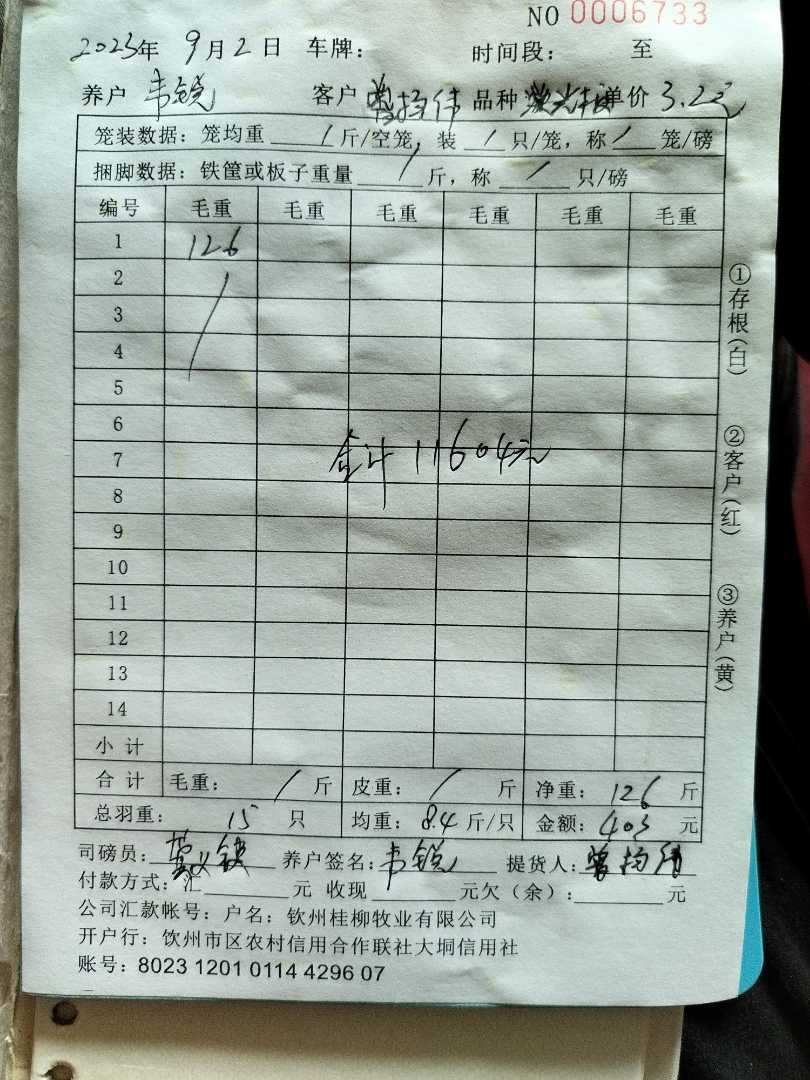 NO 0006733
2023年 9月2日 车牌： 时间段： 至
养户 韦锐 客户 曾扬伟 品种 单价 3.2元
笼装数据：笼均重 / 斤/空笼，装 / 只/笼，称 / 笼/磅
捆脚数据：铁筐或板子重量 / 斤，称 / 只/磅
编号 毛重 毛重 毛重 毛重 毛重 毛重
1 126
2
3
4
5
6
7
合计 11604元
8
9
10
11
12
13
14
小计
合计 毛重： / 斤 皮重： / 斤 净重：126 斤
总羽重： 15 只 均重：8.4 斤/只 金额：403 元
司磅员： 养户签名：韦锐 提货人：曾扬伟
付款方式：汇 元 收现 元欠（余）： 元
公司汇款帐号：户名：钦州桂柳牧业有限公司
开户行：钦州市区农村信用合作联社大垌信用社
账号：8023 1201 0114 4296 07
①存根(白)
②客户(红)
③养户(黄)